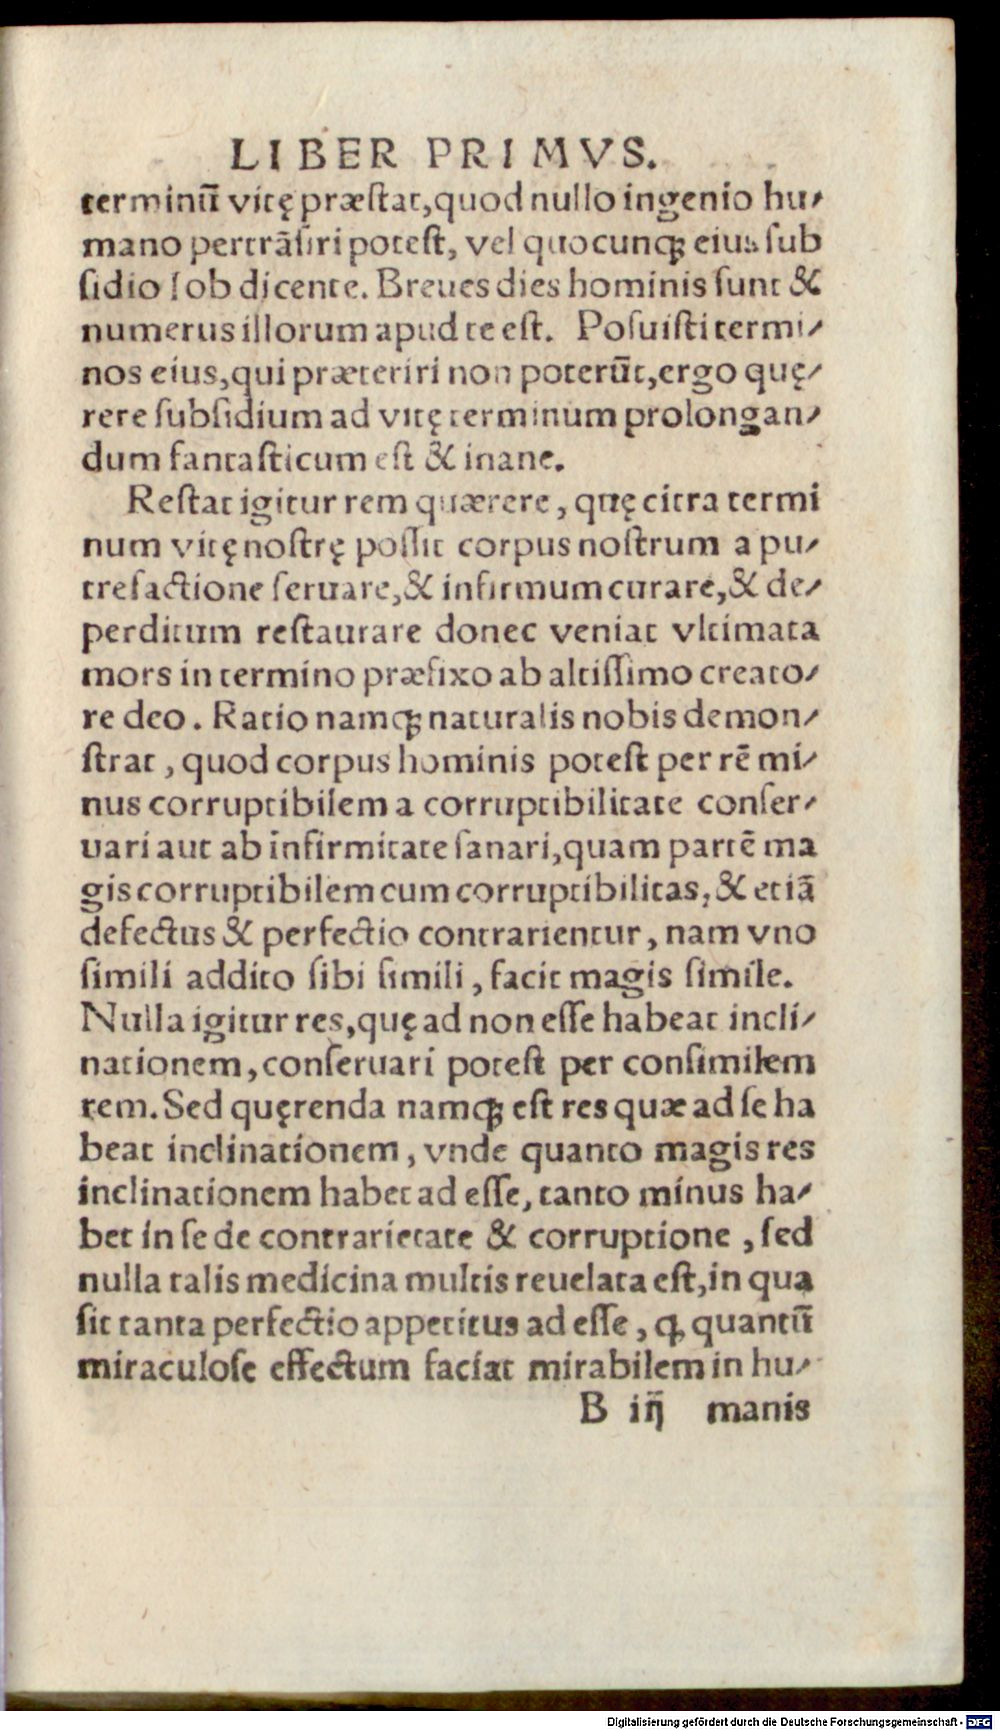 LIBER PRIMVS.
terminū vitę præſtat,quod nullo ingenio hu⸗
mano pertrāſiri poteſt, vel quocunq; eius ſub
ſidio Iob dicente. Breues dies hominis ſunt &
numerus illorum apud te eſt. Poſuiſti termi⸗
nos eius,qui præteriri non poterūt,ergo quę⸗
rere ſubſidium ad vitę terminum prolongan⸗
dum fantaſticum eſt & inane.
Reſtat igitur rem quærere, quę citra termi
num vitę noſtrę poſſit corpus noſtrum a pu⸗
trefactione ſeruare,& infirmum curare,& de⸗
perditum reſtaurare donec veniat vltimata
mors in termino præfixo ab altiſſimo creato⸗
re deo. Ratio namq; naturalis nobis demon⸗
ſtrat, quod corpus hominis poteſt per rē mi⸗
nus corruptibilem a corruptibilitate conſer⸗
uari aut ab infirmitate ſanari,quam partē ma
gis corruptibilem cum corruptibilitas,& etiā
defectus & perfectio contrarientur, nam vno
ſimili addito ſibi ſimili, facit magis ſimile.
Nulla igitur res,quę ad non eſſe habeat incli⸗
nationem,conſeruari poteſt per conſimilem
rem. Sed quęrenda namq; eſt res quæ ad ſe ha
beat inclinationem, vnde quanto magis res
inclinationem habet ad eſſe, tanto minus ha⸗
bet in ſe de contrarietate & corruptione, ſed
nulla talis medicina multis reuelata eſt,in qua
ſit tanta perfectio appetitus ad eſſe, ꝙ quantū
miraculoſe effectum faciat mirabilem in hu⸗
B iij manis
Digitalisierung gefördert durch die Deutsche Forschungsgemeinschaft - DFG